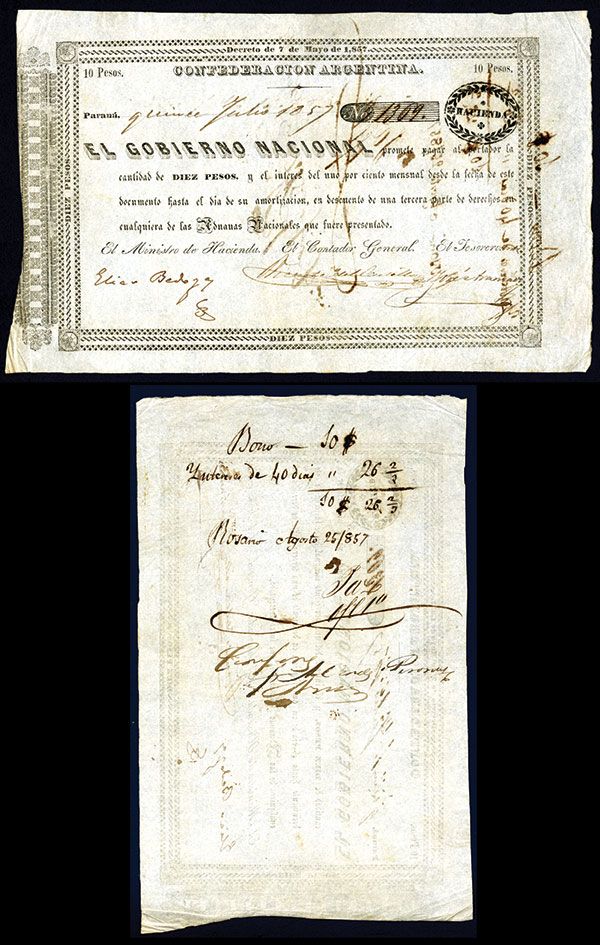 Decreto de 7 de Mayo de 1,857.
10 Pesos. CONFEDERACION ARGENTINA. 10 Pesos.
Paraná. quince Julio 1857 1309
HACIENDA
EL GOBIERNO NACIONAL promete pagar al portador la
cantidad de DIEZ PESOS, y el interes del uno por ciento mensual desde la fecha de este
documento hasta el dia de su amortizacion, en descuento de una tercera parte de derechos en
cualquiera de las Aduanas Nacionales que fuere presentado.
El Ministro de Hacienda. El Contador General. El Tesorero
Elias Bedoya
DIEZ PESOS
DIEZ PESOS
DIEZ PESOS
Bono — 10 $
Yntereses de 40 dias " 26 2/3
10 $ 26 2/3
Rosario Agosto 25/857